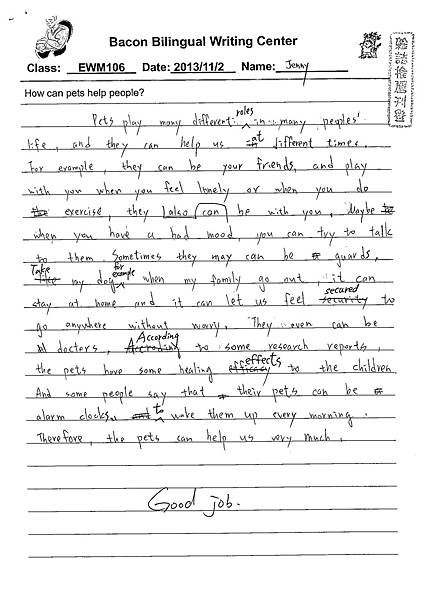 Bacon Bilingual Writing Center
Class: EWM106 Date: 2013/11/2 Name: Jenny
How can pets help people?
roles
Pets play many different in many peoples'
life, and they can help us at different times.
For example, they can be your friends, and play
with you when you feel lonely or when you do
exercise, they also can be with you. Maybe
when you have a bad mood, you can try to talk
to them. Sometimes they may can be guards,
Take for example
like my dog, when my family go out, it can
secured
stay at home and it can let us feel security to
go anywhere without worry. They even can be
According
doctors, According to some research reports,
effects
the pets have some healing efficacy to the children
And some people say that their pets can be
to
alarm clocks, and wake them up every morning.
Therefore, the pets can help us very much.
Good job.